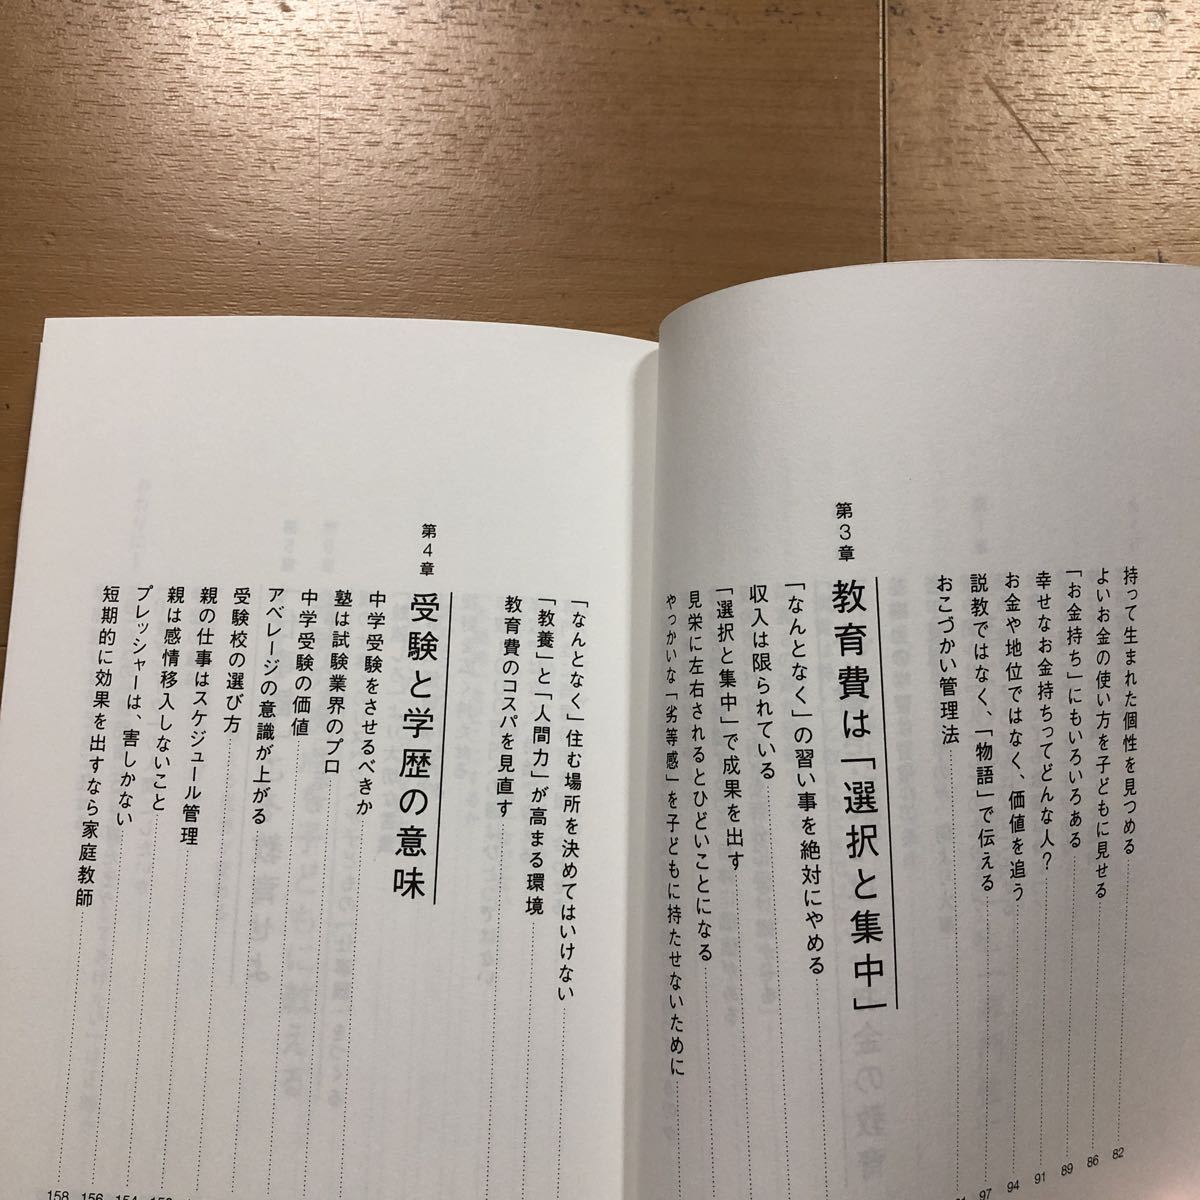 持って生まれた個性を見つめる 82
よいお金の使い方を子どもに見せる 86
「お金持ち」にもいろいろある 89
幸せなお金持ちってどんな人？ 91
お金や地位ではなく、価値を追う 94
説教ではなく、「物語」で伝える 97
おこづかい管理法
第3章 教育費は「選択と集中」
「なんとなく」の習い事を絶対にやめる
収入は限られている
「選択と集中」で成果を出す
見栄に左右されるとひどいことになる
やっかいな「劣等感」を子どもに持たせないために
「なんとなく」住む場所を決めてはいけない
「教養」と「人間力」が高まる環境
教育費のコスパを見直す
第4章 受験と学歴の意味
中学受験をさせるべきか
塾は試験業界のプロ
中学受験の価値
アベレージの意識が上がる
受験校の選び方
親の仕事はスケジュール管理
親は感情移入しないこと
プレッシャーは、害しかない 156
短期的に効果を出すなら家庭教師 158